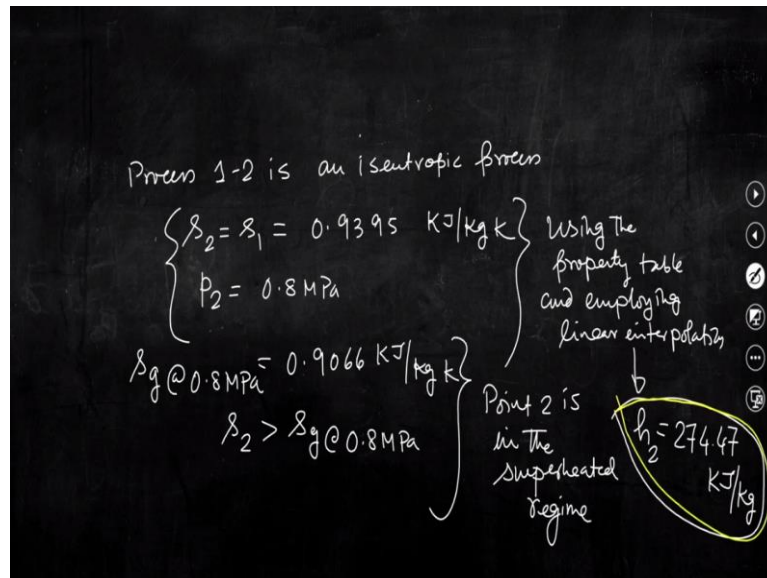 Process 1-2 is an isentropic process
S₂ = S₁ = 0.9395 KJ/kg K
P₂ = 0.8 MPa
Using the
property table
and employing
linear interpolation
Sg@0.8MPa = 0.9066 KJ/kg K
S₂ > Sg@0.8MPa
Point 2 is
in the
superheated
regime
h₂ = 274.47
KJ/kg